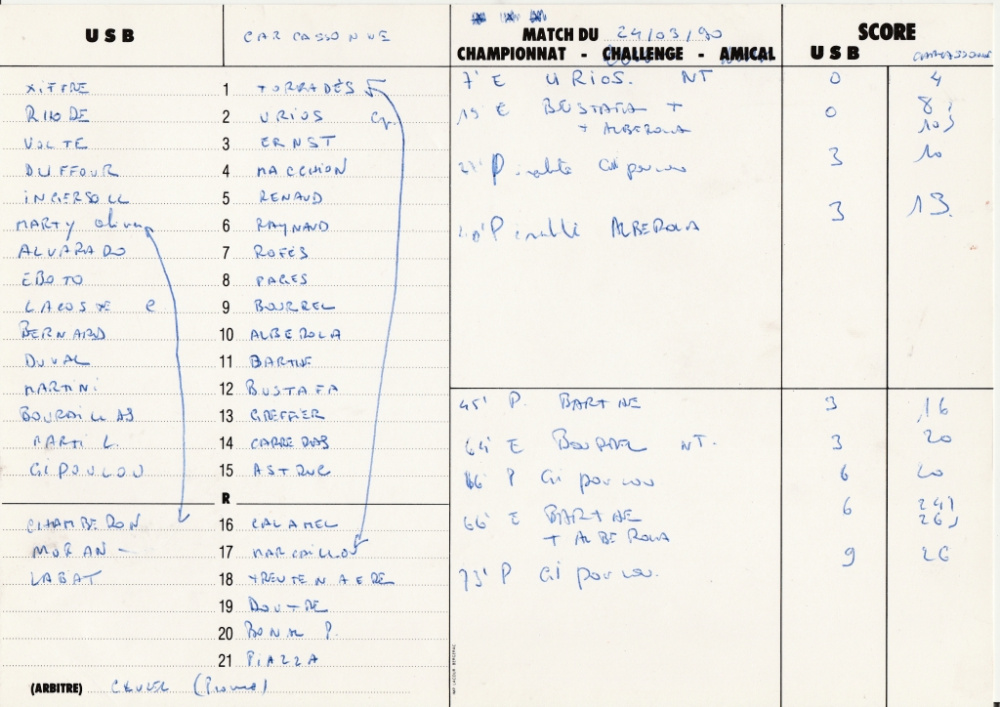 USB CARCASSONNE
MATCH DU 24/03/90
CHAMPIONNAT - CHALLENGE - AMICAL
SCORE
USB CARCASSONNE
XIFFRE 1 TORRADÈS
RHODE 2 URIOS Cp.
VOLTE 3 ERNST
DUFFOUR 4 MACCHION
INGERSOLL 5 RENAUD
MARTY 6 RAYNAUD
ALVARADO 7 ROFÈS
EBOTO 8 PAGES
LACOSTE C 9 BOURREL
BERNARD 10 ALBEROLA
DUVAL 11 BARTHE
MARTINI 12 BUSTAFA
BOURAILLAS 13 GREFFIER
MARTI L. 14 CARRE
GIPOULOU 15 ASTRUC
R
CHAMBERON 16 CALAMEL
MORAN - 17 MARCAILLOU
LABAT 18 TRENTENAERE
19 DOUTRE
20 BONAL P.
21 PIAZZA
(ARBITRE)
7' E URIOS. NT 0 4
19 E BUSTAFA + 0 8
+ ALBEROLA 10
P Gipoulou 3 10
40' Pénalité ALBEROLA 3 13.
45' P. BARTHE 3 16
64' E BOURREL NT. 3 20
66' P Gipoulou 6 20
66' E BARTHE 6 24
+ ALBEROLA 26
73' P Gipoulou. 9 26